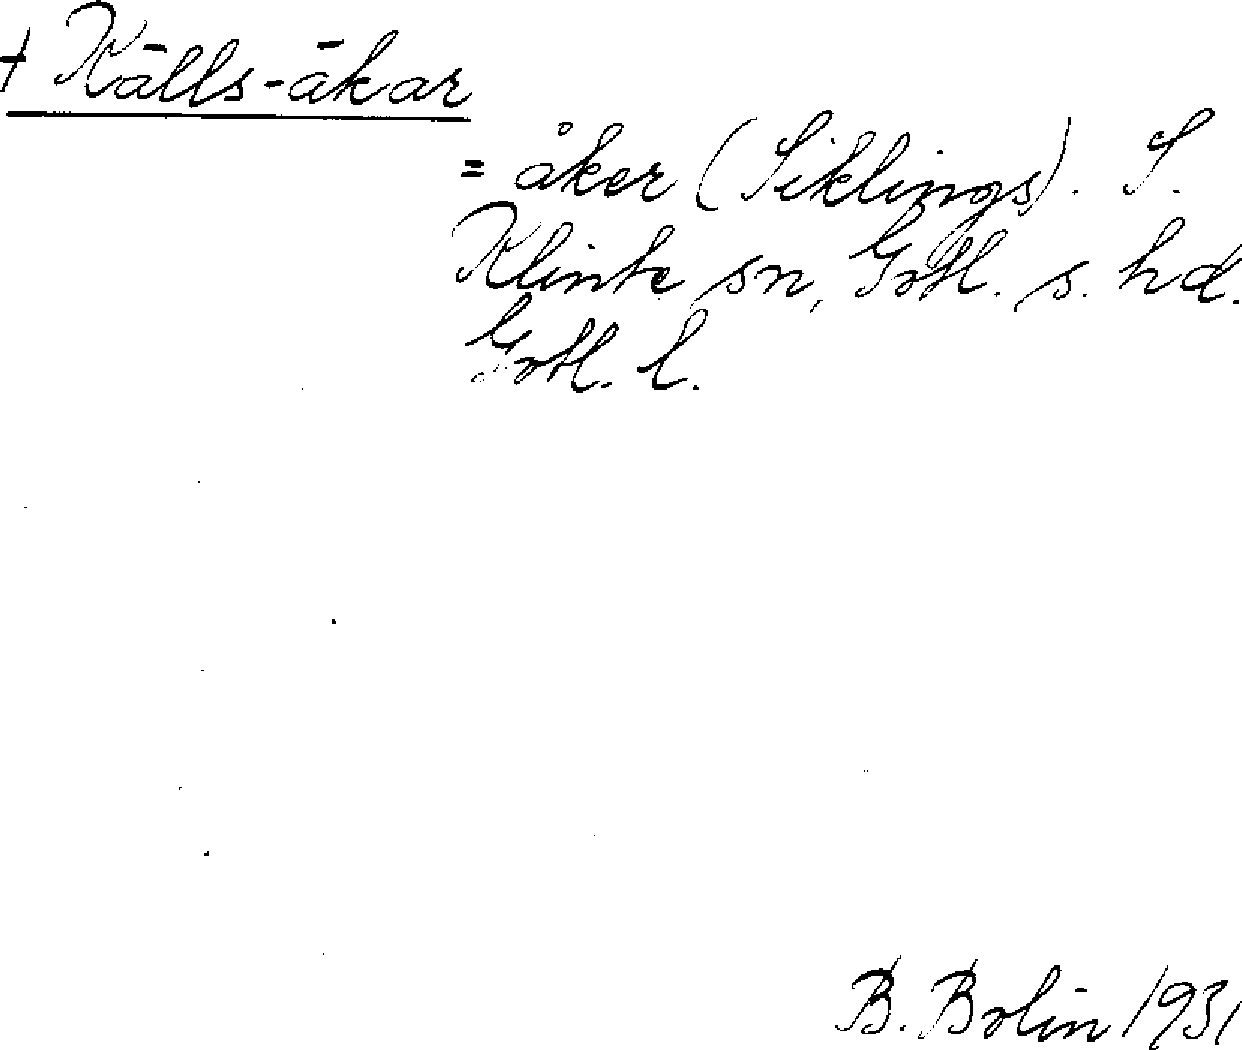 + Källs-åkar
= åker (Siklings). S.
Klinte sn, Gotl. s. hd.
Gotl. l.
B. Bolin 1931